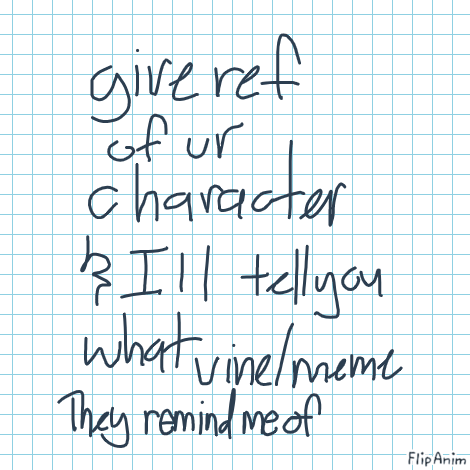 give ref
of ur
character
& I'll tell you
what vine/meme
They remind me of
FlipAnim